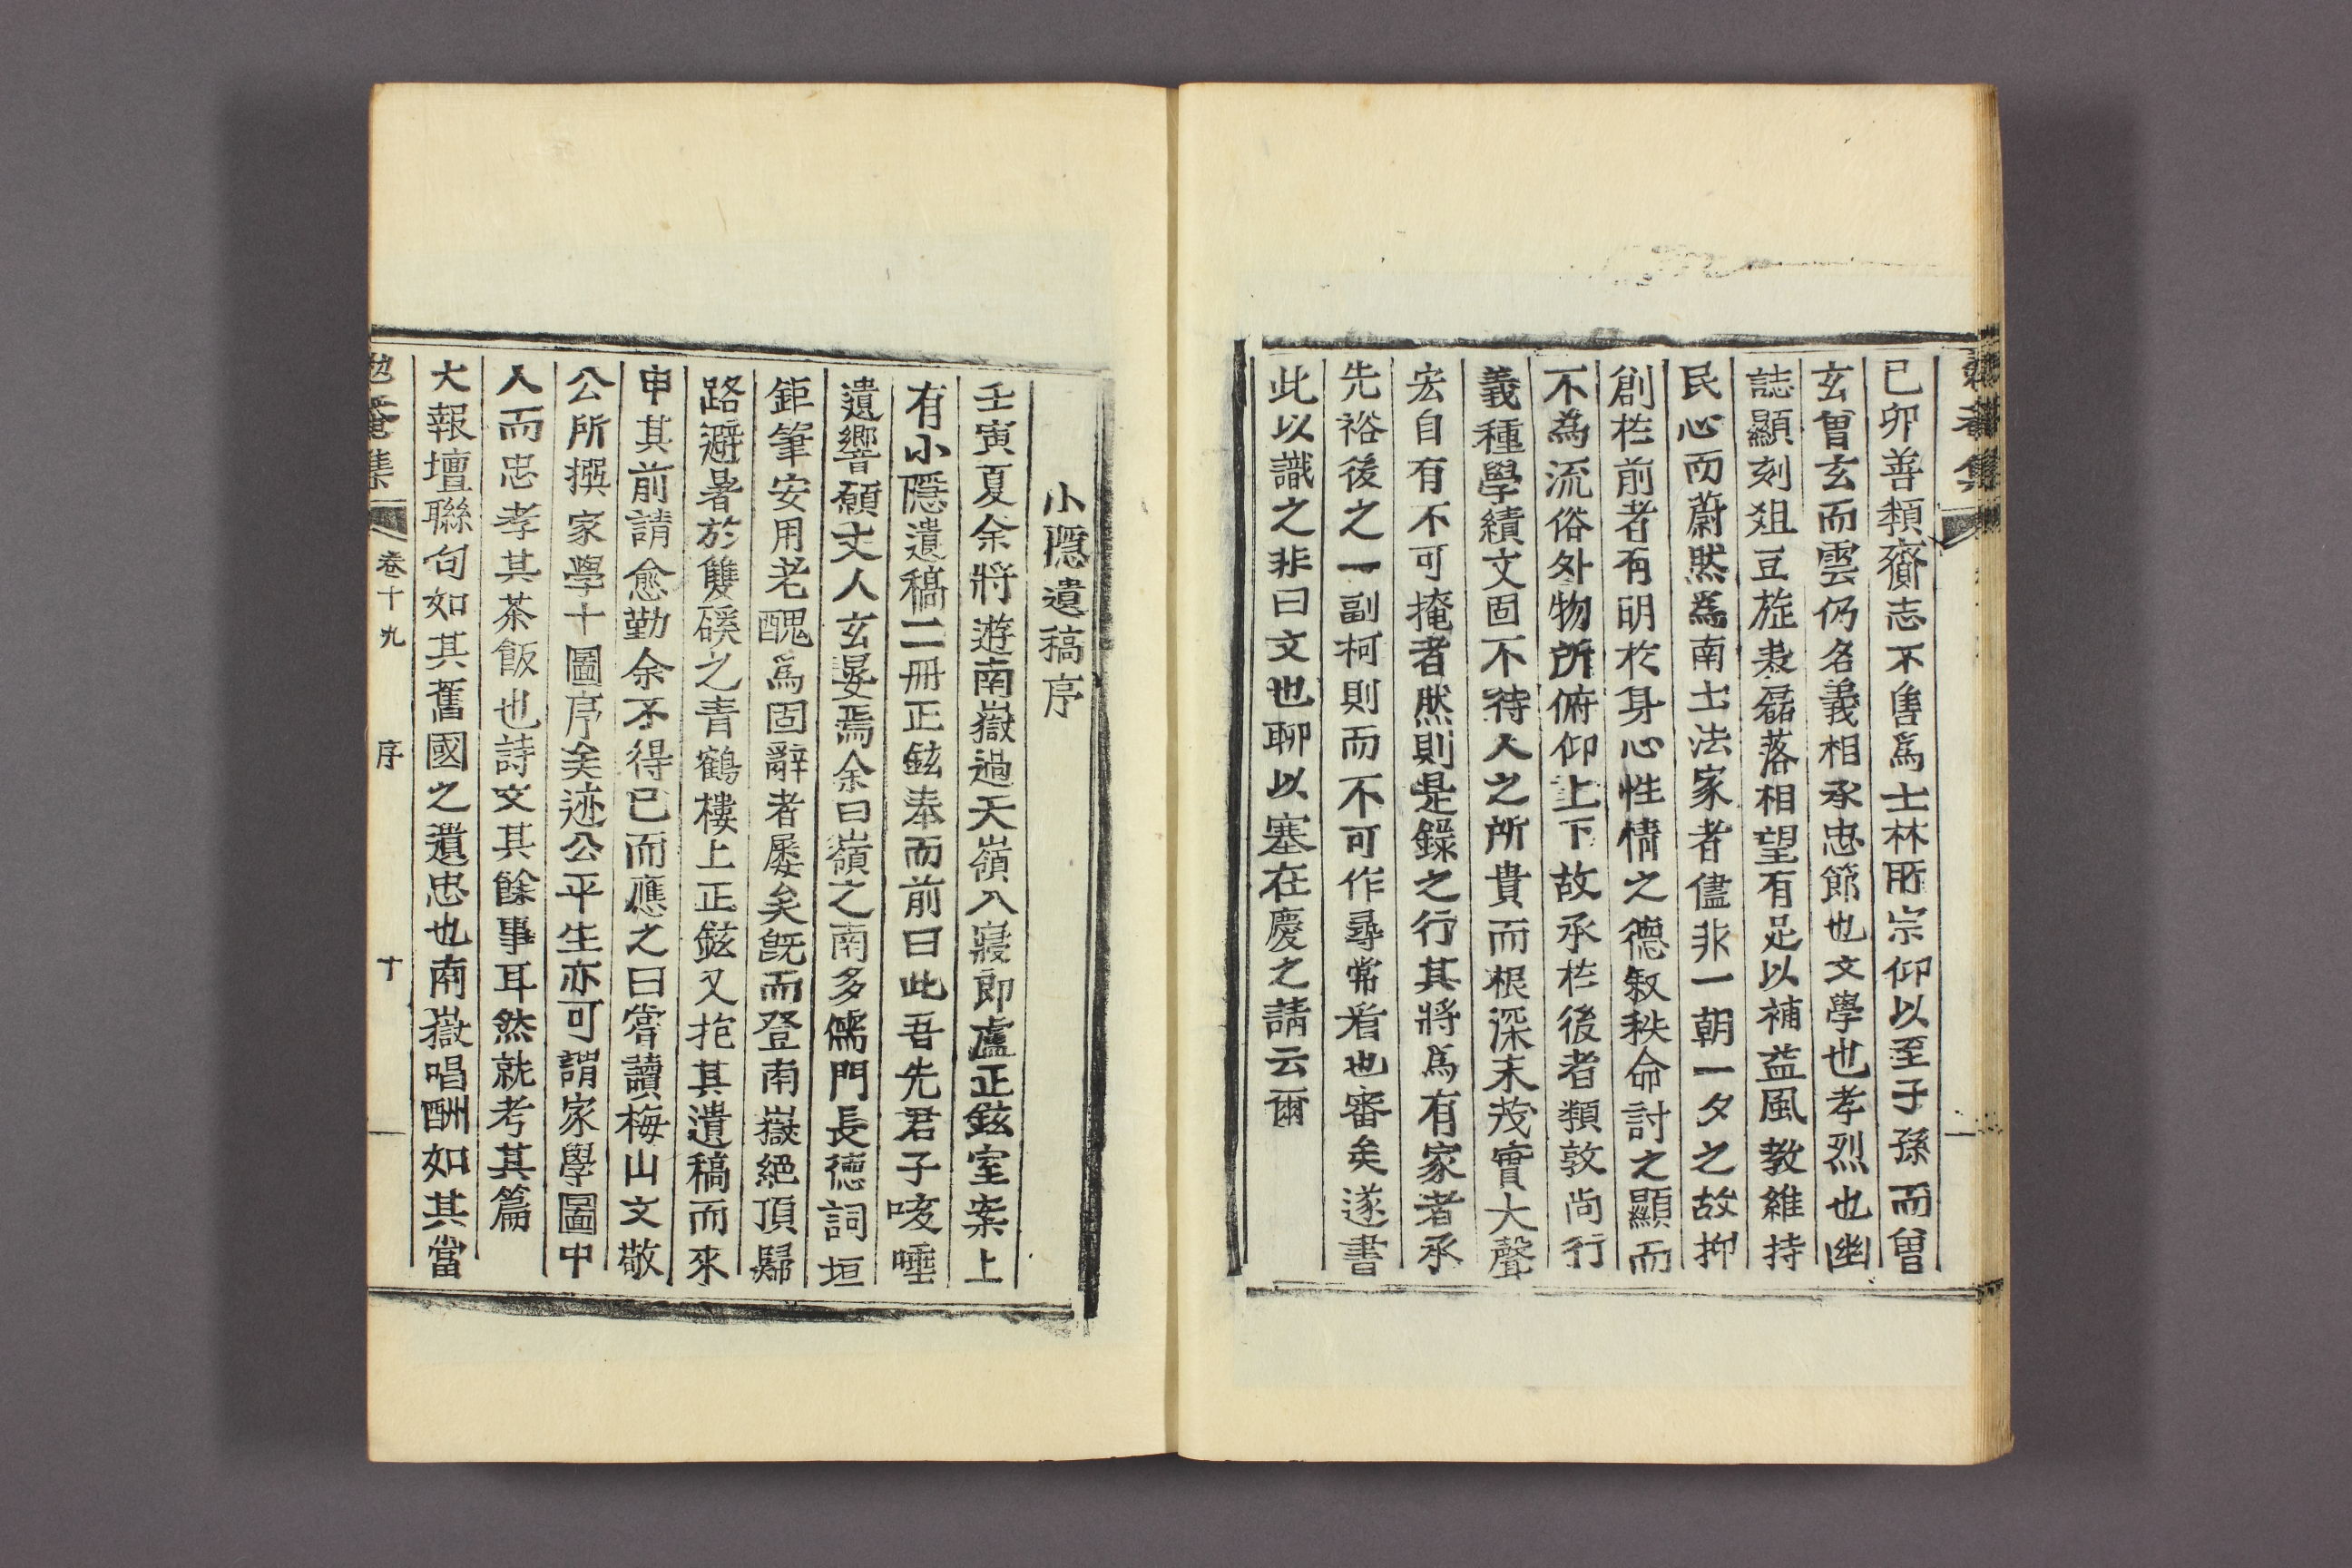 己卯善類齎志不售爲士林所宗仰以至子孫而曾
玄曾玄而雲仍名義相承忠節也文學也孝烈也幽
誌顯刻俎豆旌表磊落相望有足以補益風敎維持
民心而蔚然爲南士法家者儘非一朝一夕之故抑
創於前者有明於身心性情之德敍秩命討之顯而
不為流俗外物所俯仰上下故承於後者類敦尙行
義種學績文固不待人之所貴而根深末茂實大聲
宏自有不可掩者然則是錄之行其將爲有家者承
先裕後之一副柯則而不可作尋常看也審矣遂書
此以識之非曰文也聊以塞在慶之請云爾
小隱遺稿序
壬寅夏余將遊南嶽過天嶺入寢郞盧正鉉室案上
有小隱遺稿二冊正鉉奉而前曰此吾先君子咳唾
遺響願丈人玄晏焉余曰嶺之南多儒門長德詞垣
鉅筆安用老醜爲固辭者屢矣旣而登南嶽絕頂歸
路避暑於雙磎之靑鶴樓上正鉉又抱其遺稿而來
申其前請愈勤余不得已而應之曰嘗讀梅山文敬
公所撰家學十圖序矣迹公平生亦可謂家學圖中
人而忠孝其茶飯也詩文其餘事耳然就考其篇
大報壇聯句如其舊國之遺忠也南嶽唱酬如其當
勉菴集 卷十九 序 十